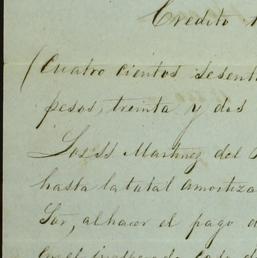 Credito
(Cuatro cientos sesent
pesos, treinta y dos
Los SS Martinez del
hasta la total amortiza
Sor, al hacer el pago